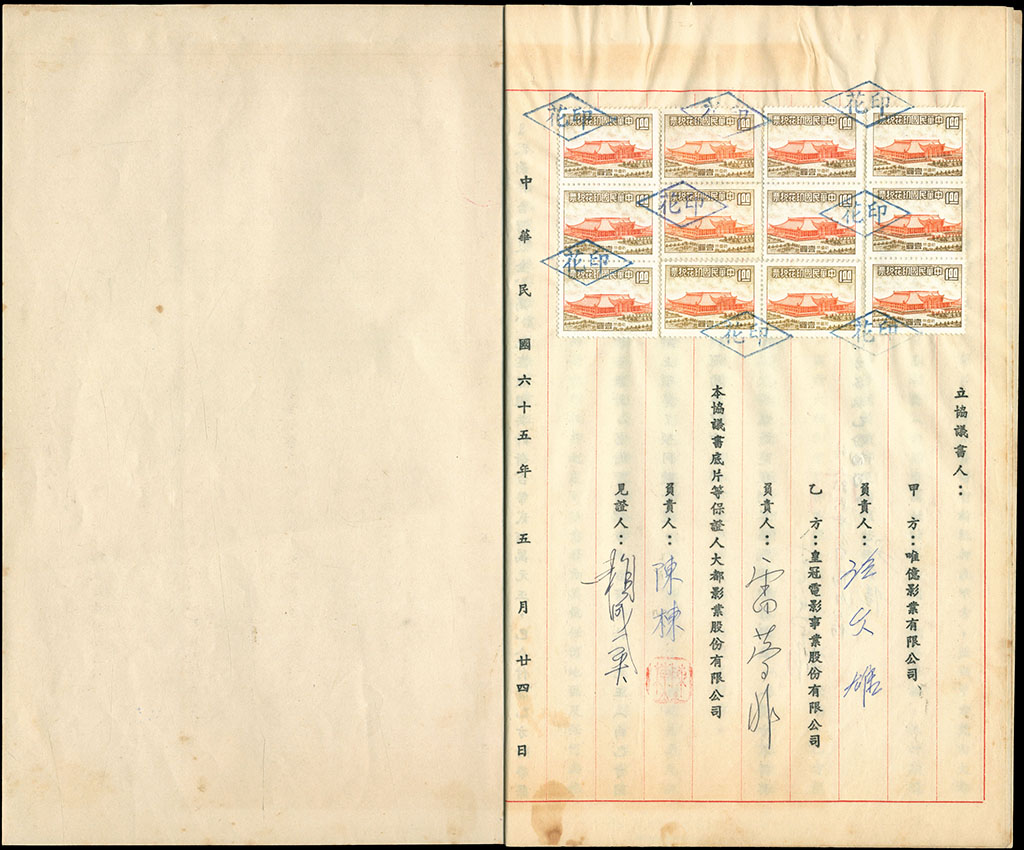 中華民國印花稅票
壹圓
中華民國印花稅票
壹圓
中華民國印花稅票
壹圓
中華民國印花稅票
壹圓
中華民國印花稅票
壹圓
中華民國印花稅票
壹圓
中華民國印花稅票
壹圓
中華民國印花稅票
壹圓
中華民國印花稅票
壹圓
中華民國印花稅票
壹圓
中華民國印花稅票
壹圓
中華民國印花稅票
壹圓
印花
印花
印花
印花
印花
印花
印花
立協議書人：
甲　方：唯億影業有限公司
負責人：
乙　方：皇冠電影事業股份有限公司
負責人：雷
本協議書底片等保證人大都影業股份有限公司
負責人：陳棟
見證人：
中華民國六十五年五月廿四日